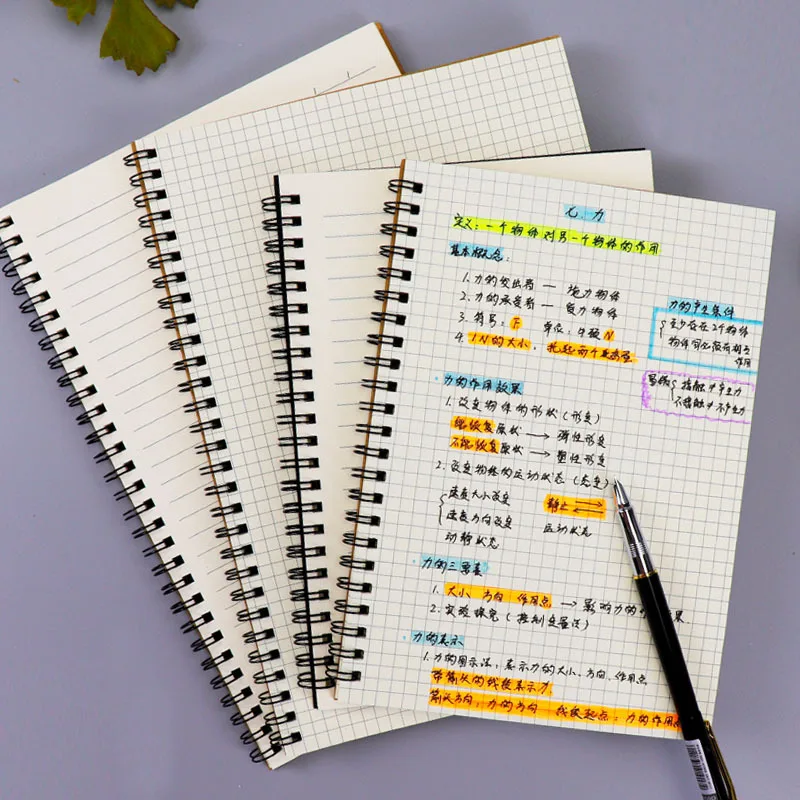 七、力
定义:一个物体对另一个物体的作用
基本概念:
1.力的发出者 — 施力物体
2.力的承受者 — 受力物体
3.符号:F 单位:牛顿 N
4.1N的大小,托起两个鸡蛋
力的产生条件
至少存在2个物体
物体间必须有相互
作用
易错
接触≠产生力
不接触≠不产生力
力的作用效果
1.改变物体的形状(形变)
能恢复原状 → 弹性形变
不能恢复原状 → 塑性形变
2.改变物体的运动状态(态变)
速度大小改变
速度方向改变
动静状态
静止
运动状态
力的三要素
1.大小 方向 作用点 → 影响力的作 果.
2.实验探究(控制变量法)
力的表示
1.力的图示法:表示力的大小、方向、作用点
带箭头的线段表示力
箭头方向:力的方向 线段起点:力的作用点